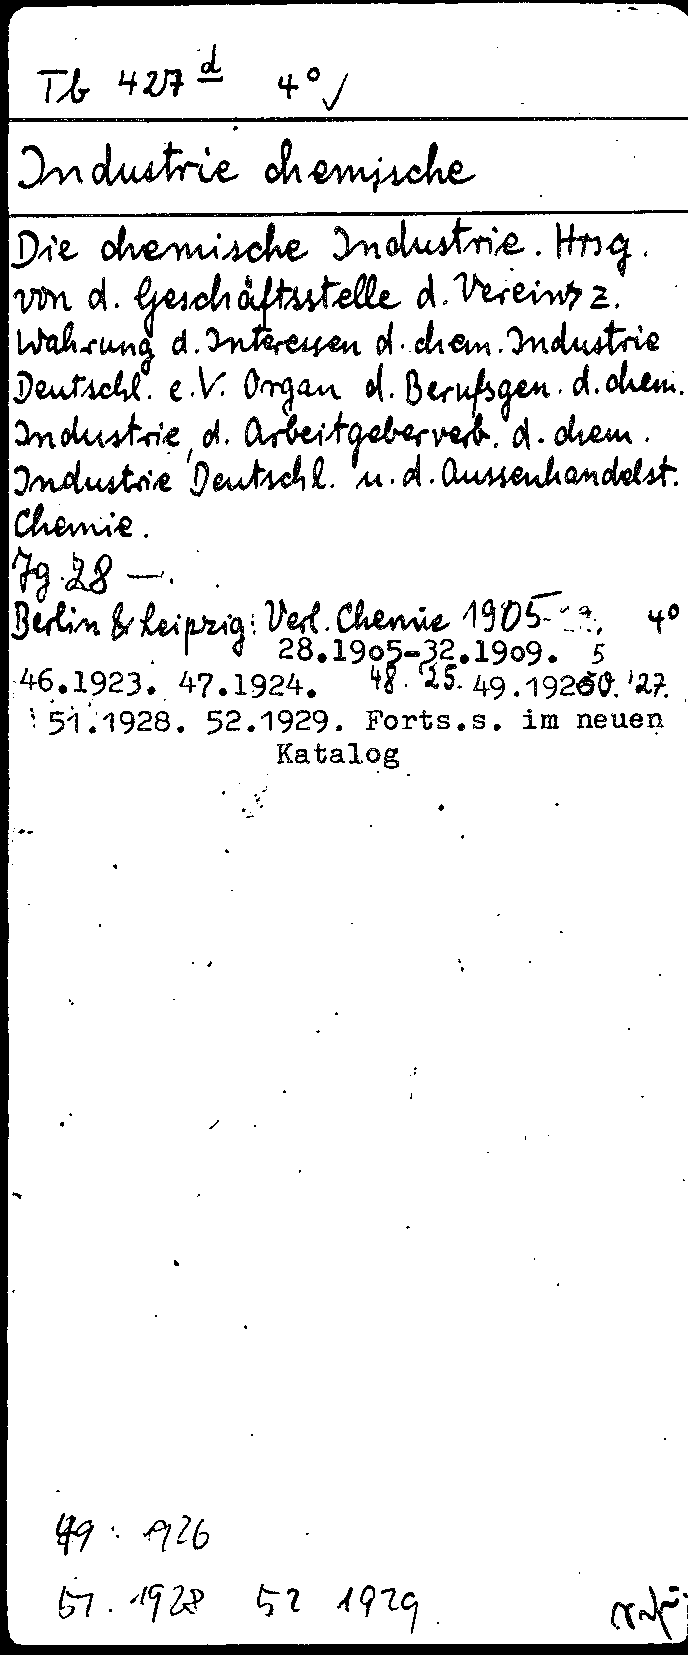 Tb 427 d 4° √
Industrie chemische
Die chemische Industrie. Hrsg.
von d. Geschäftsstelle d. Vereins z.
Wahrung d. Interessen d. chem. Industrie
Deutschl. e.V. Organ d. Berufsgen. d. chem.
Industrie, d. Arbeitgeberverb. d. chem.
Industrie Deutschl. u. d. Aussenhandelst.
Chemie.
Jg. 28 —.
Berlin & Leipzig: Verl. Chemie 1905- 4°
28.1905-32.1909.
46.1923. 47.1924. 48. 25. 49.1926 50. '27.
51.1928. 52.1929. Forts.s. im neuen
Katalog
49. 1926
51. 1928 52 1929